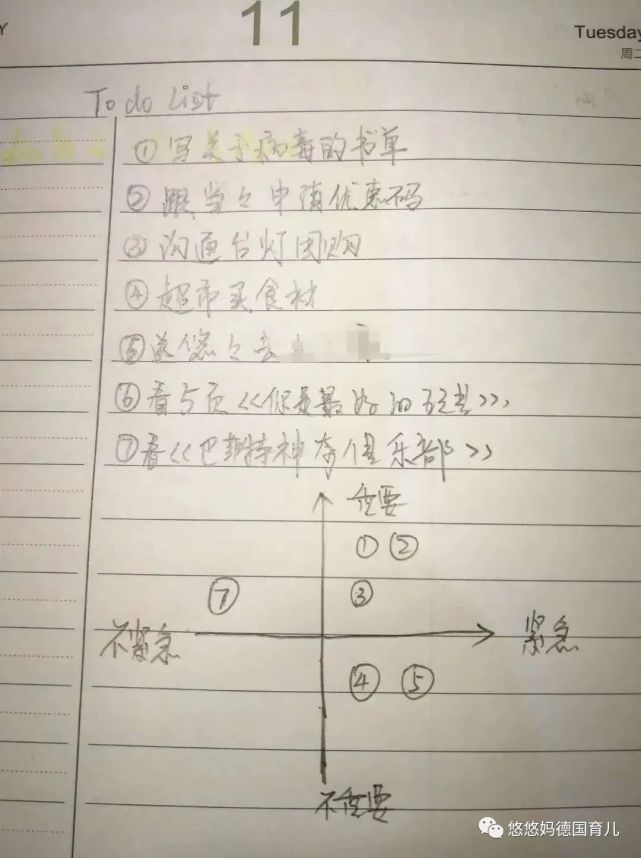 11
Tuesday
周二
To do List
① 写关于病毒的书单
② 跟当々申请优惠码
③ 沟通台灯团购
④ 超市买食材
⑤ 送悠々去
⑥ 看5页《你是最好的
⑦ 看《巴斯特神奇俱乐部》
重要
① ②
⑦ ③
不紧急 紧急
④ ⑤
不重要
悠悠妈德国育儿